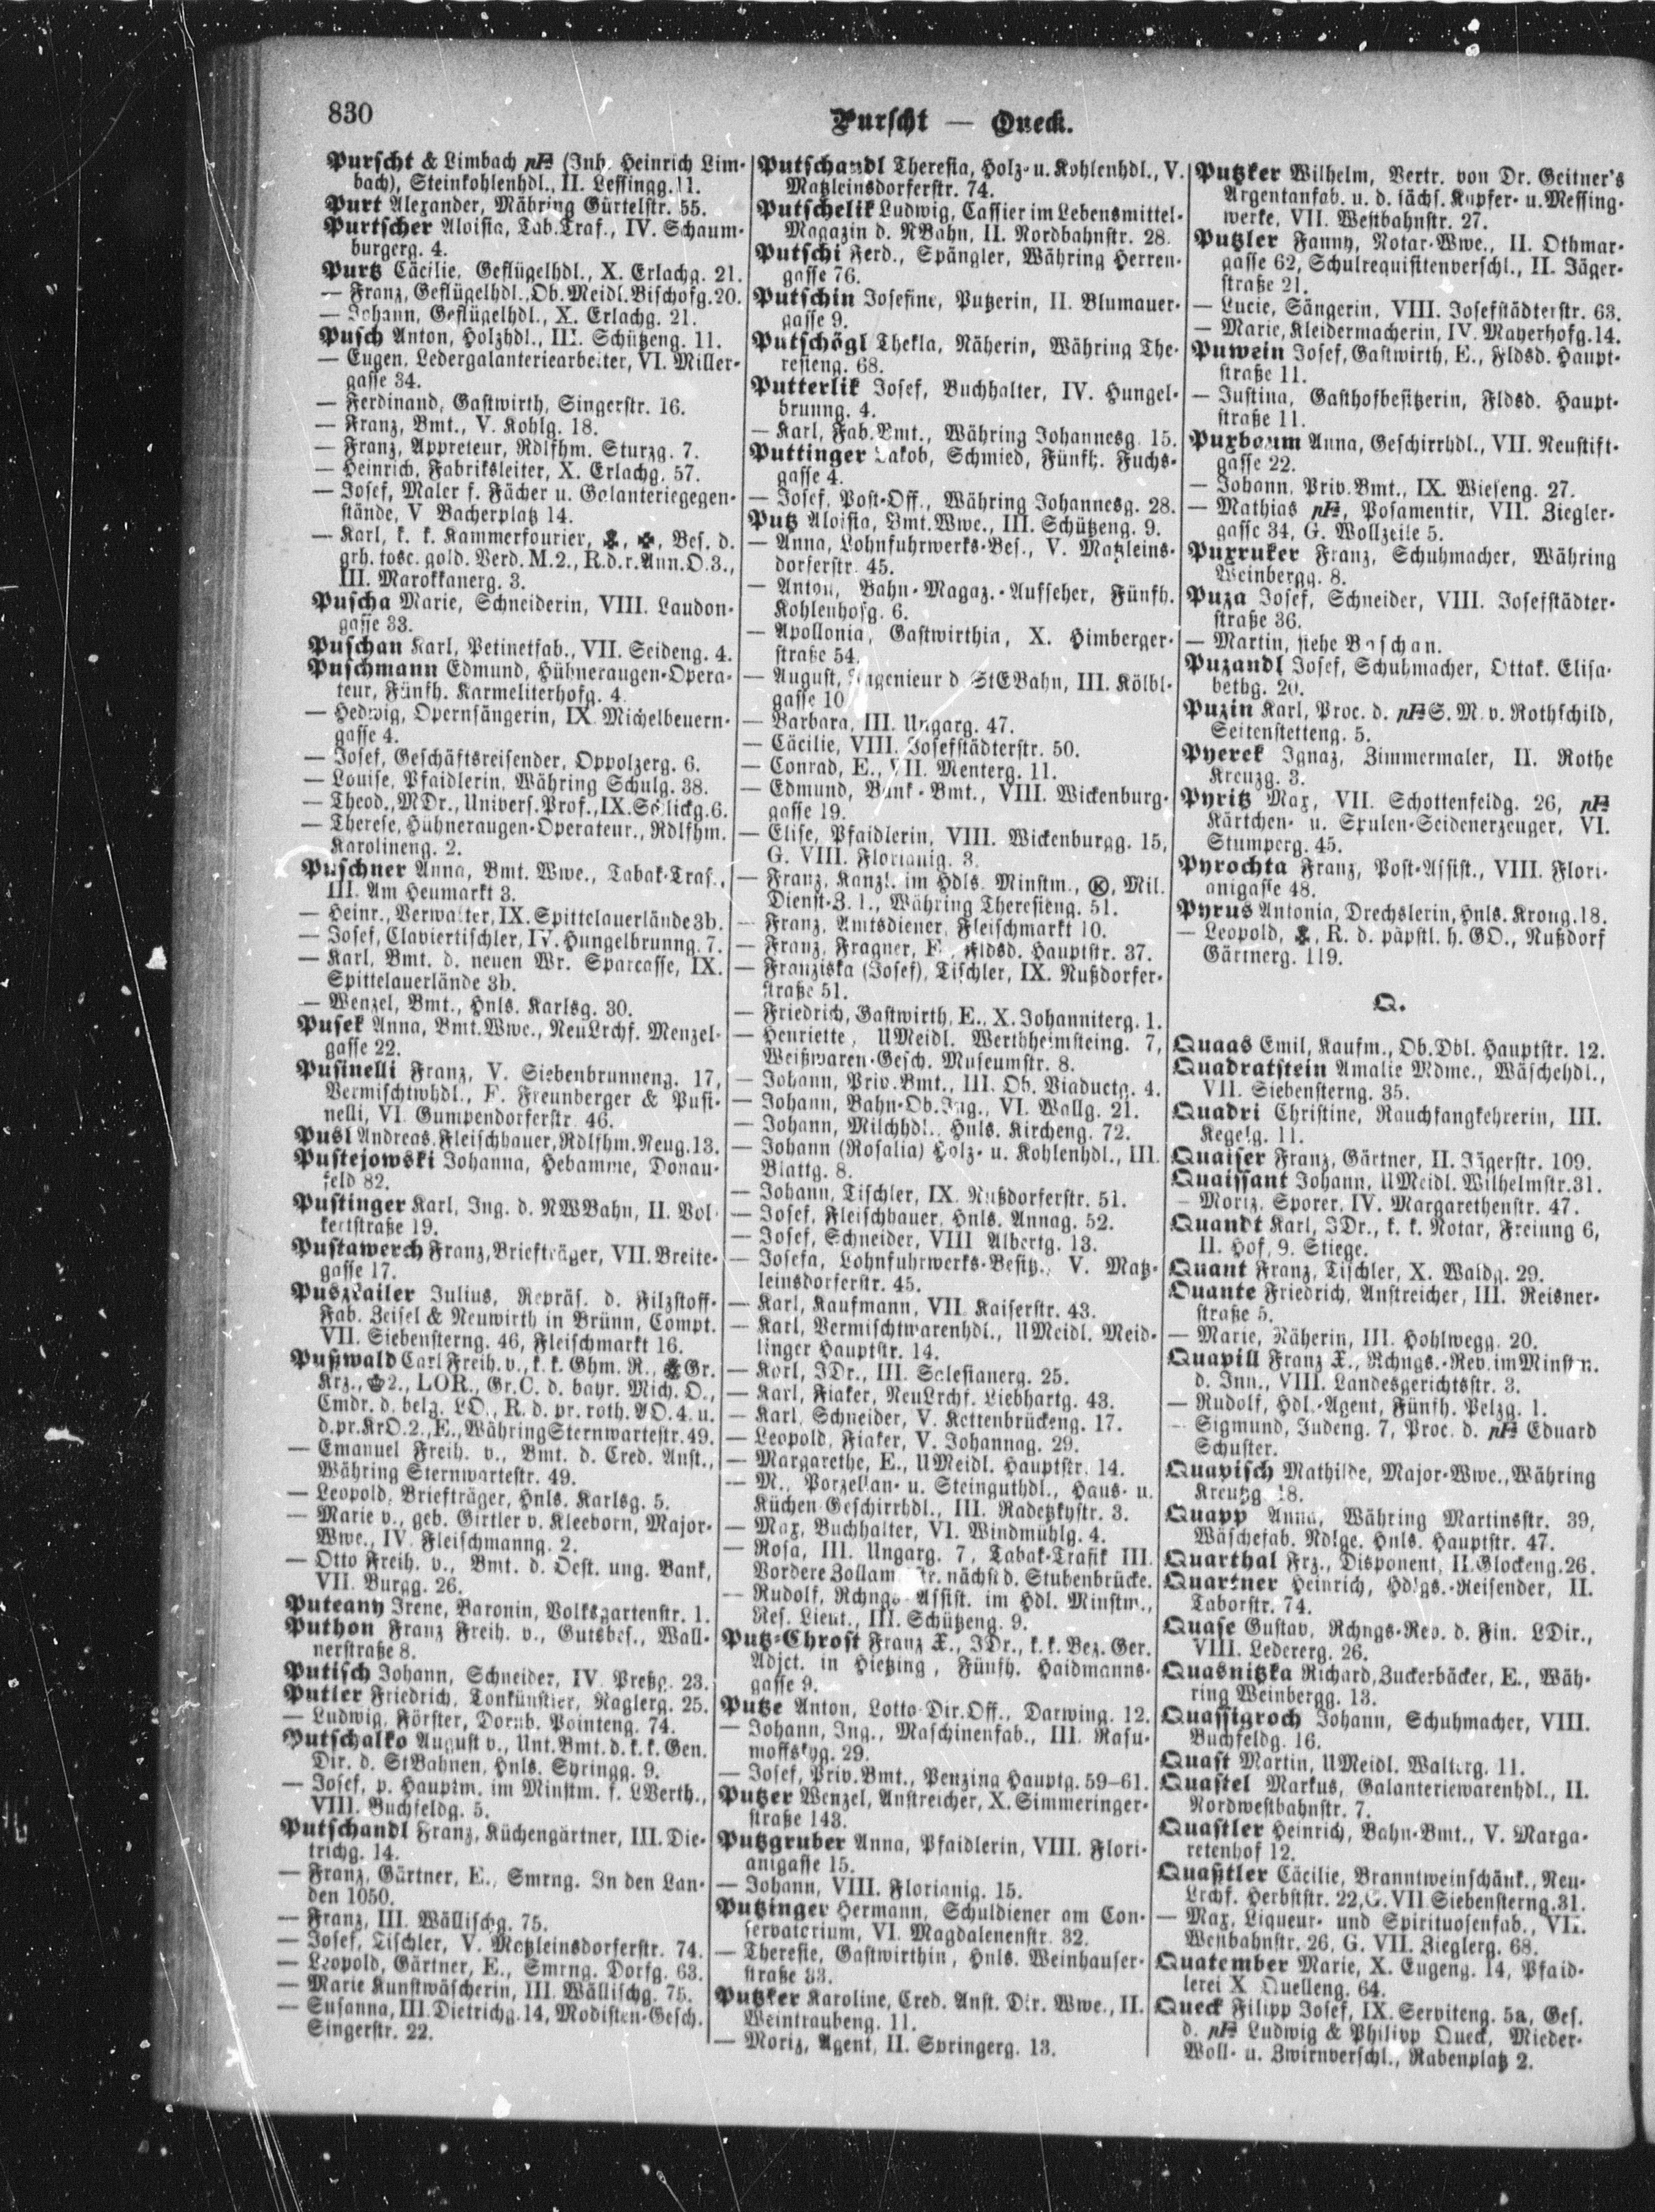 830
Purscht — Queck.
Purscht & Limbach (Inh. Heinrich Lim-
bach), Steinkohlenhdl., II. Lessingg. 11.
Purt Alexander, Währing Gürtelstr. 55.
Purtscher Aloisia, Tab.Traf., IV. Schaum-
burgerg. 4.
Purtz Cäcilie, Geflügelhdl., X. Erlachg. 21.
— Franz, Geflügelhdl., Ob. Meidl. Bischofg. 20.
— Johann, Geflügelhdl., X. Erlachg. 21.
Pusch Anton, Holzhdl., III. Schützeng. 11.
— Eugen, Ledergalanteriearbeiter, VI. Miller-
gasse 34.
— Ferdinand, Gastwirth, Singerstr. 16.
— Franz, Bmt., V. Kohlg. 18.
— Franz, Appreteur, Rdlfhm. Sturzg. 7.
— Heinrich, Fabriksleiter, X. Erlachg. 57.
— Josef, Maler f. Fächer u. Galanteriegegen-
stände, V Bacherplatz 14.
— Karl, k. k. Kammerfourier, Bes. d.
grh. tosc. gold. Verd. M.2., R.d.r.Ann.O.3.,
III. Marokkanerg. 3.
Puscha Marie, Schneiderin, VIII. Laudon-
gasse 33.
Puschan Karl, Petinetfab., VII. Seideng. 4.
Puschmann Edmund, Hühneraugen-Opera-
teur, Fünfh. Karmeliterhofg. 4.
— Hedwig, Opernsängerin, IX. Michelbeuern-
gasse 4.
— Josef, Geschäftsreisender, Oppolzerg. 6.
— Louise, Pfaidlerin, Währing Schulg. 38.
— Theod., MDr., Univers.Prof., IX. Schlickg. 6.
— Therese, Hühneraugen-Operateur., Rdlfhm.
Karolineng. 2.
Puschner Anna, Bmt. Wwe., Tabak-Traf.,
III. Am Heumarkt 3.
— Heinr., Verwalter, IX. Spittelauerlände 3b.
— Josef, Claviertischler, IV. Hungelbrunng. 7.
— Karl, Bmt. d. neuen Wr. Sparcasse, IX.
Spittelauerlände 3b.
— Wenzel, Bmt., Hnls. Karlsg. 30.
Pusek Anna, Bmt.Wwe., NeuLrchf. Menzel-
gasse 22.
Pusinelli Franz, V. Siebenbrunneng. 17,
Vermischtwhdl., F. Freunberger & Pusi-
nelli, VI. Gumpendorferstr. 46.
Pusl Andreas, Fleischhauer, Rdlfhm. Neug. 13.
Pustejowski Johanna, Hebamme, Donau-
feld 82.
Pustinger Karl, Ing. d. NWBahn, II. Vol-
kertstraße 19.
Pustawerch Franz, Briefträger, VII. Breite-
gasse 17.
Puszkailer Julius, Repräs. d. Filzstoff-
Fab. Zeisel & Neuwirth in Brünn, Compt.
VII. Siebensterng. 46, Fleischmarkt 16.
Pußwald Carl Freih. v., k. k. Ghm. R., Gr.
Krz., 2., LOR., Gr.C. d. bayr. Mich. O.,
Cmdr. d. belg. LO., R. d. pr. roth. AO. 4. u.
d.pr.KrO.2., E., Währing Sternwartestr. 49.
— Emanuel Freih. v., Bmt. d. Cred. Anst.,
Währing Sternwartestr. 49.
— Leopold, Briefträger, Hnls. Karlsg. 5.
— Marie v., geb. Girtler v. Kleeborn, Major-
Wwe., IV. Fleischmanng. 2.
— Otto Freih. v., Bmt. d. Oest. ung. Bank,
VII. Burgg. 26.
Puteany Irene, Baronin, Volksgartenstr. 1.
Puthon Franz Freih. v., Gutsbes., Wall-
nerstraße 8.
Putisch Johann, Schneider, IV. Preßg. 23.
Putler Friedrich, Tonkünstler, Naglerg. 25.
— Ludwig, Förster, Dornb. Pointeng. 74.
Putschalko August v., Unt.Bmt. d. k. k. Gen.
Dir. d. StBahnen, Hnls. Syringg. 9.
— Josef, p. Hauptm. im Minstm. f. LVerth.,
VIII. Buchfeldg. 5.
Putschandl Franz, Küchengärtner, III. Die-
trichg. 14.
— Franz, Gärtner, E., Smrng. In den Lan-
den 1050.
— Franz, III. Wällischg. 75.
— Josef, Tischler, V. Matzleinsdorferstr. 74.
— Leopold, Gärtner, E., Smrng. Dorfg. 63.
— Marie Kunstwäscherin, III. Wällischg. 75.
— Susanna, III. Dietrichg. 14, Modisten-Gesch.
Singerstr. 22.
Putschandl Theresia, Holz- u. Kohlenhdl., V.
Matzleinsdorferstr. 74.
Putschelik Ludwig, Cassier im Lebensmittel-
Magazin d. NBahn, II. Nordbahnstr. 28.
Putschi Ferd., Spängler, Währing Herren-
gasse 76.
Putschin Josefine, Putzerin, II. Blumauer-
gasse 9.
Putschögl Thekla, Näherin, Währing The-
resieng. 68.
Putterlik Josef, Buchhalter, IV. Hungel-
brunng. 4.
— Karl, Fab.Bmt., Währing Johannesg. 15.
Puttinger Jakob, Schmied, Fünfh. Fuchs-
gasse 4.
— Josef, Post-Off., Währing Johannesg. 28.
Putz Aloisia, Bmt.Wwe., III. Schützeng. 9.
— Anna, Lohnfuhrwerks-Bes., V. Matzleins-
dorferstr. 45.
— Anton, Bahn-Magaz.-Aufseher, Fünfh.
Kohlenhofg. 6.
— Apollonia, Gastwirthin, X. Himberger-
straße 54.
— August, Ingenieur d. StEBahn, III. Kölbl-
gasse 10.
— Barbara, III. Ungarg. 47.
— Cäcilie, VIII. Josefstädterstr. 50.
— Conrad, E., VII. Menterg. 11.
— Edmund, Bank-Bmt., VIII. Wickenburg-
gasse 19.
— Elise, Pfaidlerin, VIII. Wickenburgg. 15,
G. VIII. Florianig. 3.
— Franz, Kanzl. im Hdls. Minstm., Ⓚ, Mil.
Dienst-Z. 1., Währing Theresieng. 51.
— Franz, Amtsdiener, Fleischmarkt 10.
— Franz, Fragner, E., Fldsd. Hauptstr. 37.
— Franziska (Josef), Tischler, IX. Nußdorfer-
straße 51.
— Friedrich, Gastwirth, E., X. Johanniterg. 1.
— Henriette, UMeidl. Wertheimsteing. 7,
Weißwaren-Gesch. Museumstr. 8.
— Johann, Priv.Bmt., III. Ob. Viaductg. 4.
— Johann, Bahn-Ob.Ing., VI. Wallg. 21.
— Johann, Milchhdl., Hnls. Kircheng. 72.
— Johann (Rosalia) Holz- u. Kohlenhdl., III.
Blattg. 8.
— Johann, Tischler, IX. Nußdorferstr. 51.
— Josef, Fleischhauer, Hnls. Annag. 52.
— Josef, Schneider, VIII Albertg. 13.
— Josefa, Lohnfuhrwerks-Besitz., V. Matz-
leinsdorferstr. 45.
— Karl, Kaufmann, VII. Kaiserstr. 43.
— Karl, Vermischtwarenhdl., UMeidl. Meid-
linger Hauptstr. 14.
— Karl, JDr., III. Salesianerg. 25.
— Karl, Fiaker, NeuLrchf. Liebhartg. 43.
— Karl, Schneider, V. Kettenbrückeng. 17.
— Leopold, Fiaker, V. Johannag. 29.
— Margarethe, E., UMeidl. Hauptstr. 14.
— M., Porzellan- u. Steinguthdl., Haus- u.
Küchen-Geschirrhdl., III. Radetzkystr. 3.
— Max, Buchhalter, VI. Windmühlg. 4.
— Rosa, III. Ungarg. 7, Tabak-Trafik III.
Vordere Zollamtsstr. nächst d. Stubenbrücke.
— Rudolf, Rchngs-Assist. im Hdl. Minstm.,
Res. Lieut., III. Schützeng. 9.
Putz-Chrost Franz X., JDr., k. k. Bez. Ger.
Adjct. in Hietzing, Fünfh. Haidmanns-
gasse 9.
Putze Anton, Lotto-Dir.Off., Darwing. 12.
— Johann, Ing., Maschinenfab., III. Rasu-
moffskyg. 29.
— Josef, Priv.Bmt., Penzing Hauptg. 59–61.
Putzer Wenzel, Anstreicher, X. Simmeringer-
straße 143.
Putzgruber Anna, Pfaidlerin, VIII. Flori-
anigasse 15.
— Johann, VIII. Florianig. 15.
Putzinger Hermann, Schuldiener am Con-
servatorium, VI. Magdalenenstr. 32.
— Theresie, Gastwirthin, Hnls. Weinhauser-
straße 33.
Putzker Karoline, Cred. Anst. Dir. Wwe., II.
Weintraubeng. 11.
— Moriz, Agent, II. Springerg. 13.
Putzker Wilhelm, Vertr. von Dr. Geitner's
Argentanfab. u. d. sächs. Kupfer- u. Messing-
werke, VII. Westbahnstr. 27.
Putzler Fanny, Notar-Wwe., II. Othmar-
gasse 62, Schulrequisitenverschl., II. Jäger-
straße 21.
— Lucie, Sängerin, VIII. Josefstädterstr. 63.
— Marie, Kleidermacherin, IV. Mayerhofg. 14.
Puwein Josef, Gastwirth, E., Fldsd. Haupt-
straße 11.
— Justina, Gasthofbesitzerin, Fldsd. Haupt-
straße 11.
Puxbaum Anna, Geschirrhdl., VII. Neustift-
gasse 22.
— Johann, Priv.Bmt., IX. Wieseng. 27.
— Mathias, Posamentir, VII. Ziegler-
gasse 34, G. Wollzeile 5.
Puxruker Franz, Schuhmacher, Währing
Weinbergg. 8.
Puza Josef, Schneider, VIII. Josefstädter-
straße 36.
— Martin, siehe Baschan.
Puzandl Josef, Schuhmacher, Ottak. Elisa-
bethg. 20.
Puzin Karl, Proc. d. S. M. v. Rothschild,
Seitenstetteng. 5.
Pyerek Ignaz, Zimmermaler, II. Rothe
Kreuzg. 3.
Pyritz Max, VII. Schottenfeldg. 26,
Kärtchen- u. Spulen-Seidenerzeuger, VI.
Stumperg. 45.
Pyrochta Franz, Post-Assist., VIII. Flori-
anigasse 48.
Pyrus Antonia, Drechslerin, Hnls. Krong. 18.
— Leopold, R. d. päpstl. h. GO., Nußdorf
Gärtnerg. 119.
Q.
Quaas Emil, Kaufm., Ob.Dbl. Hauptstr. 12.
Quadratstein Amalie Mdme., Wäschehdl.,
VII. Siebensterng. 35.
Quadri Christine, Rauchfangkehrerin, III.
Kegelg. 11.
Quaiser Franz, Gärtner, II. Jägerstr. 109.
Quaissant Johann, UMeidl. Wilhelmstr. 31.
— Moriz, Sporer, IV. Margarethenstr. 47.
Quandt Karl, JDr., k. k. Notar, Freiung 6,
II. Hof, 9. Stiege.
Quant Franz, Tischler, X. Waldg. 29.
Quante Friedrich, Anstreicher, III. Reisner-
straße 5.
— Marie, Näherin, III. Hohlwegg. 20.
Quapill Franz X., Rchngs.-Rev. im Minstm.
d. Inn., VIII. Landesgerichtsstr. 3.
— Rudolf, Hdl.-Agent, Fünfh. Pelzg. 1.
— Sigmund, Judeng. 7, Proc. d. Eduard
Schuster.
Quapisch Mathilde, Major-Wwe., Währing
Kreutzg. 18.
Quapp Anna, Währing Martinsstr. 39,
Wäschefab. Ndlge. Hnls. Hauptstr. 47.
Quarthal Frz., Disponent, II. Glockeng. 26.
Quartner Heinrich, Hdlgs.-Reisender, II.
Taborstr. 74.
Quase Gustav, Rchngs-Rev. d. Fin. LDir.,
VIII. Ledererg. 26.
Quasnitzka Richard, Zuckerbäcker, E., Wäh-
ring Weinbergg. 13.
Quassigroch Johann, Schuhmacher, VIII.
Buchfeldg. 16.
Quast Martin, UMeidl. Walterg. 11.
Quastel Markus, Galanteriewarenhdl., II.
Nordwestbahnstr. 7.
Quastler Heinrich, Bahn-Bmt., V. Marga-
retenhof 12.
Quaßtler Cäcilie, Branntweinschänk., Neu-
Lrchf. Herbststr. 22, G. VII Siebensterng. 31.
— Max, Liqueur- und Spirituosenfab., VII.
Westbahnstr. 26, G. VII. Zieglerg. 68.
Quatember Marie, X. Eugeng. 14, Pfaid-
lerei X Quelleng. 64.
Queck Filipp Josef, IX. Serviteng. 5a, Ges.
d. Ludwig & Philipp Queck, Mieder-
Woll- u. Zwirnverschl., Rabenplatz 2.